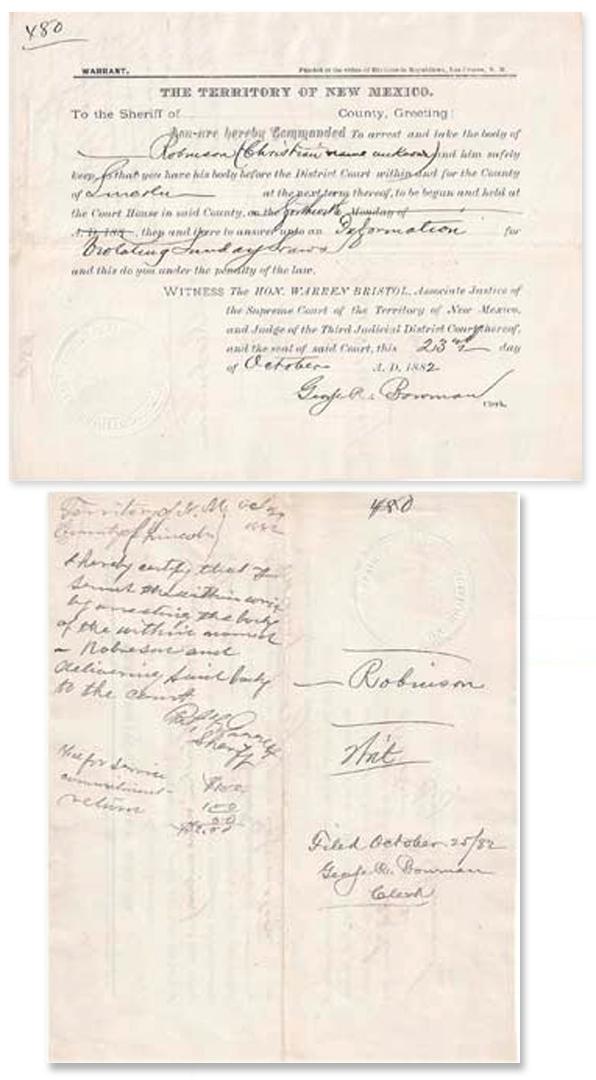 480
WARRANT.
THE TERRITORY OF NEW MEXICO.
To the Sheriff of County, Greeting:
You are hereby Commanded To arrest and take the body of
Robinson (Christian name unknown) and him safely
keep, so that you have his body before the District Court within and for the County
of Lincoln at the next term thereof, to be begun and held at
the Court House in said County, on the Monday of
A. D. 188 , then and there to answer unto an Information for
Violating Sunday Laws
and this do you under the penalty of the law.
WITNESS The HON. WARREN BRISTOL, Associate Justice of
the Supreme Court of the Territory of New Mexico,
and Judge of the Third Judicial District Court thereof,
and the seal of said Court, this 23rd day
of October A. D. 1882
George R. Bowman
Clerk.
Territory of N. M.
County of Lincoln
1882
I hereby certify that I
served the within writ
by arresting the body
of the within named
Robinson and
delivering said body
to the court
Sheriff
Fee for service
commitment
return
480
Robinson
Writ
Filed October 25/82
George R. Bowman
Clerk